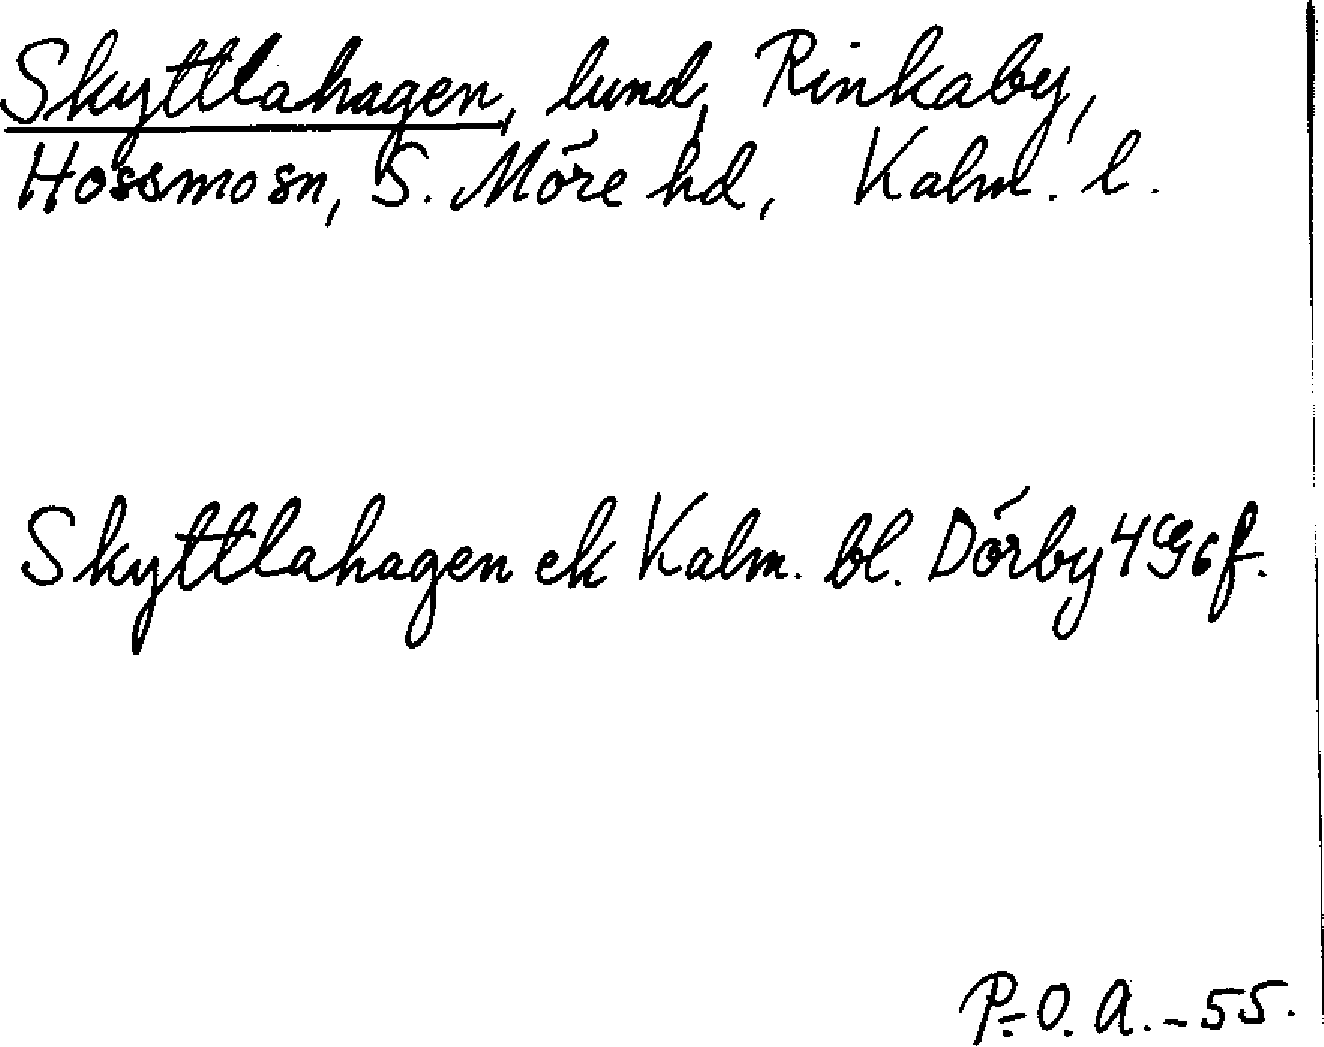 Skyttlahagen, lund, Rinkaby,
Hossmo sn, S. Möre hd, Kalm. l.
Skyttlahagen ek Kalm. bl. Dörby 4 9g f.
P.-O. A. -55.